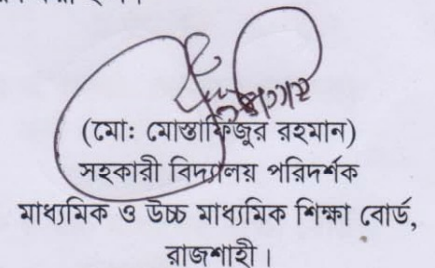 (মো: মোস্তাফিজুর রহমান)
সহকারী বিদ্যালয় পরিদর্শক
মাধ্যমিক ও উচ্চ মাধ্যমিক শিক্ষা বোর্ড,
রাজশাহী।